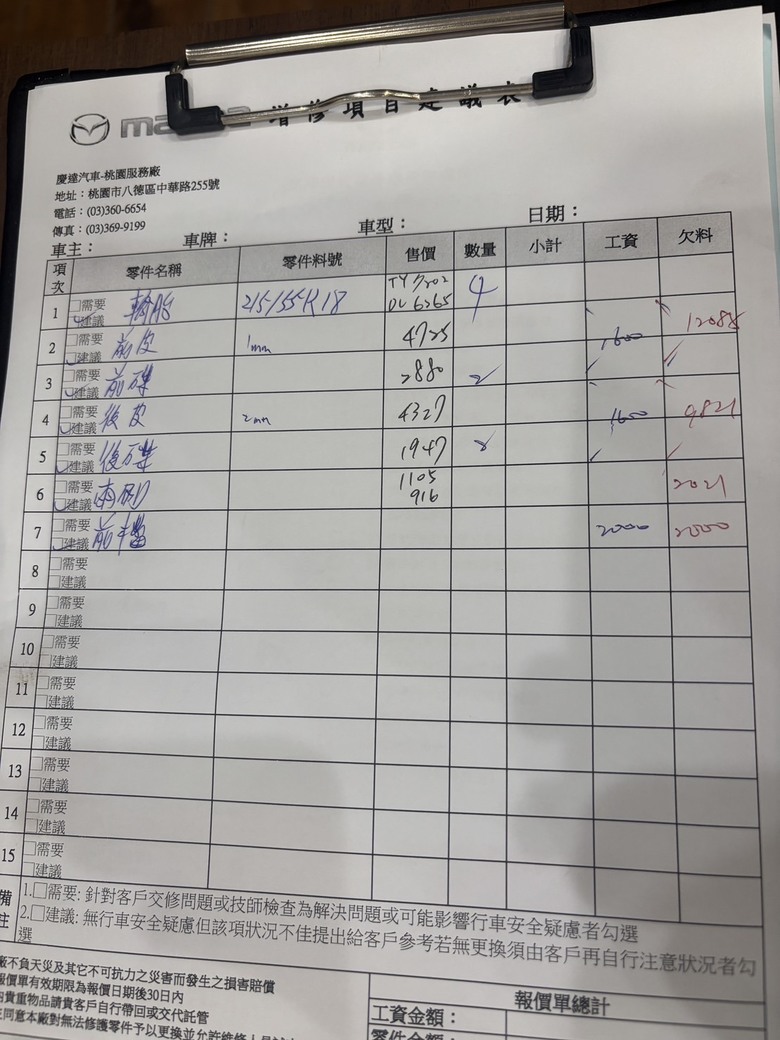 mazda 增修項目建議表
慶達汽車-桃園服務廠
地址：桃園市八德區中華路255號
電話：(03)360-6654
傳真：(03)369-9199
車主： 車牌： 車型： 日期：
項次 零件名稱 零件料號 售價 數量 小計 工資 欠料
1 □需要 □建議 輪胎 215/55R18 TY 7202 DL 6265 4
2 □需要 □建議 前皮 1mm 4725 1600 12085
3 □需要 □建議 前碟 2880 2
4 □需要 □建議 後皮 2mm 4327 1600 9821
5 □需要 □建議 後碟 1947 2
6 □需要 □建議 雨刷 1105 916 2021
7 □需要 □建議 前擋 2000 2000
8 □需要 □建議
9 □需要 □建議
10 □需要 □建議
11 □需要 □建議
12 □需要 □建議
13 □需要 □建議
14 □需要 □建議
15 □需要 □建議
備註
1.□需要: 針對客戶交修問題或技師檢查為解決問題或可能影響行車安全疑慮者勾選
2.□建議: 無行車安全疑慮但該項狀況不佳提出給客戶參考若無更換須由客戶再自行注意狀況者勾
選
廠不負天災及其它不可抗力之災害而發生之損害賠償
報價單有效期限為報價日期後30日內
內貴重物品請貴客戶自行帶回或交代託管
同意本廠對無法修護零件予以更換並允許維修人員
報價單總計
工資金額：
零件金額：